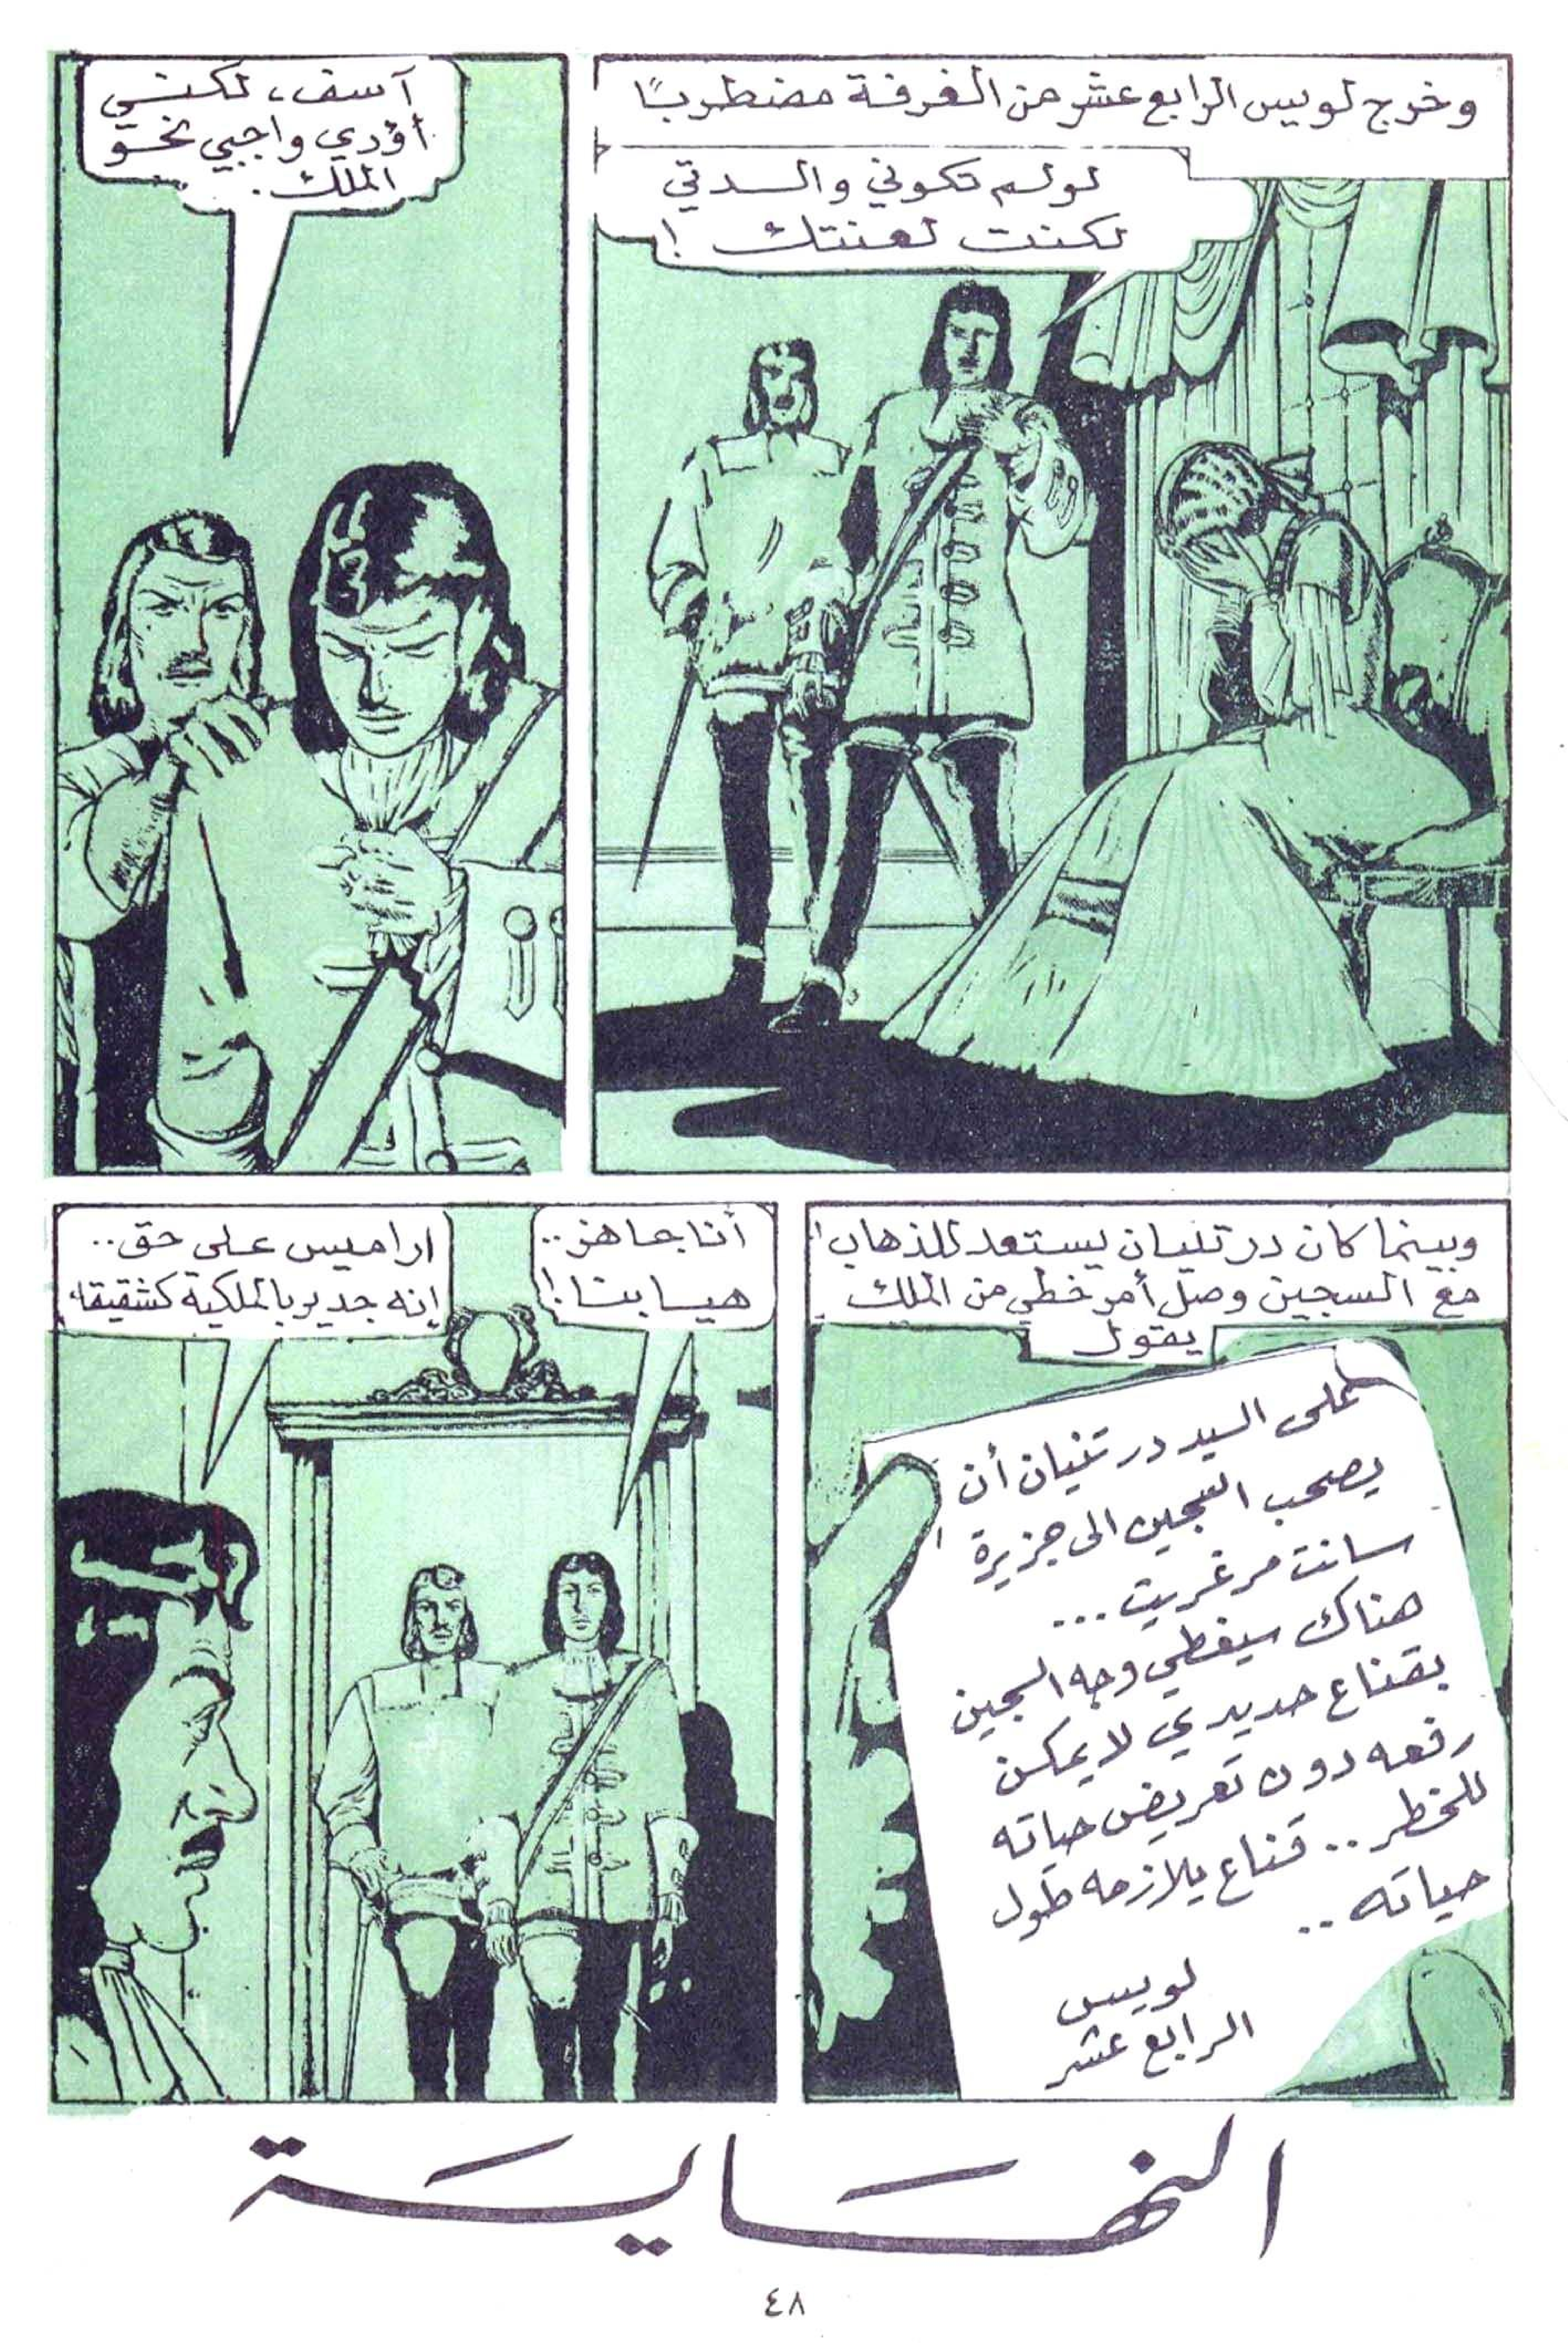 وخرج لويس الرابع عشر من الغرفة مضطربًا
لو لم تكوني والدتي
لكنت لعنتك !
آسف، لكنني
أؤدي واجبي نحو
الملك.
وبينما كان درتنيان يستعد للذهاب
مع السجين وصل أمر خطي من الملك
يقول
على السيد درتنيان أن
يصحب السجين الى جزيرة
سانت مرغريت ...
هناك سيغطي وجه السجين
بقناع حديدي لا يمكن
رفعه دون تعريض حياته
للخطر .. قناع يلازمه طول
حياته ..
لويس
الرابع عشر
أنا جاهز ..
هيا بنا !
اراميس على حق ..
إنه جدير بالملكية كشقيقه
النهاية
٤٨